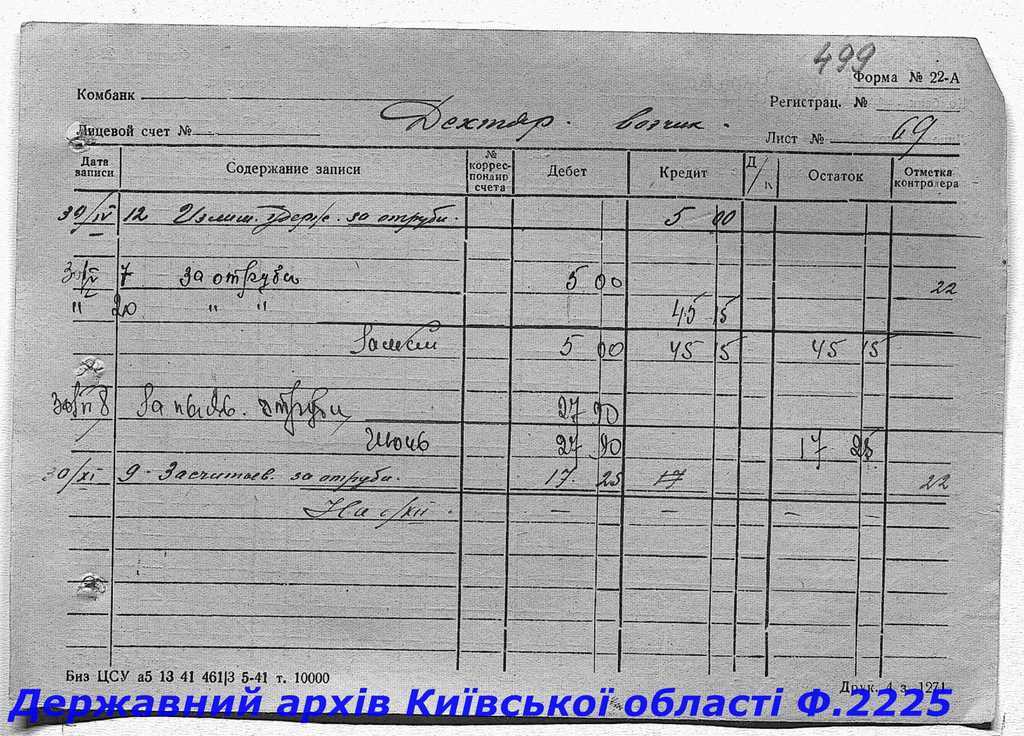 499
Форма № 22-А
Комбанк
Регистрац. №
Лицевой счет №
Дехтяр. возчик.
Лист № 69
Дата записи
Содержание записи
№ коррес-пондир счета
Дебет
Кредит
Д/К
Остаток
Отметка контролера
30/IV 12 Излиш. удерж. за отруби. 5 00
7 за отруби 5 00 22
" 20 " " 45 15
5 00 45 15 45 15
8 отруби 27 90
Июнь 27 90 17 25
30/XI 9 - Засчитаев. за отруби. 17. 25 17 22
На
Биз ЦСУ а5 13 41 461|3 5-41 т. 10000
Друк. 4 з. 1271
Державний архів Київської області Ф.2225